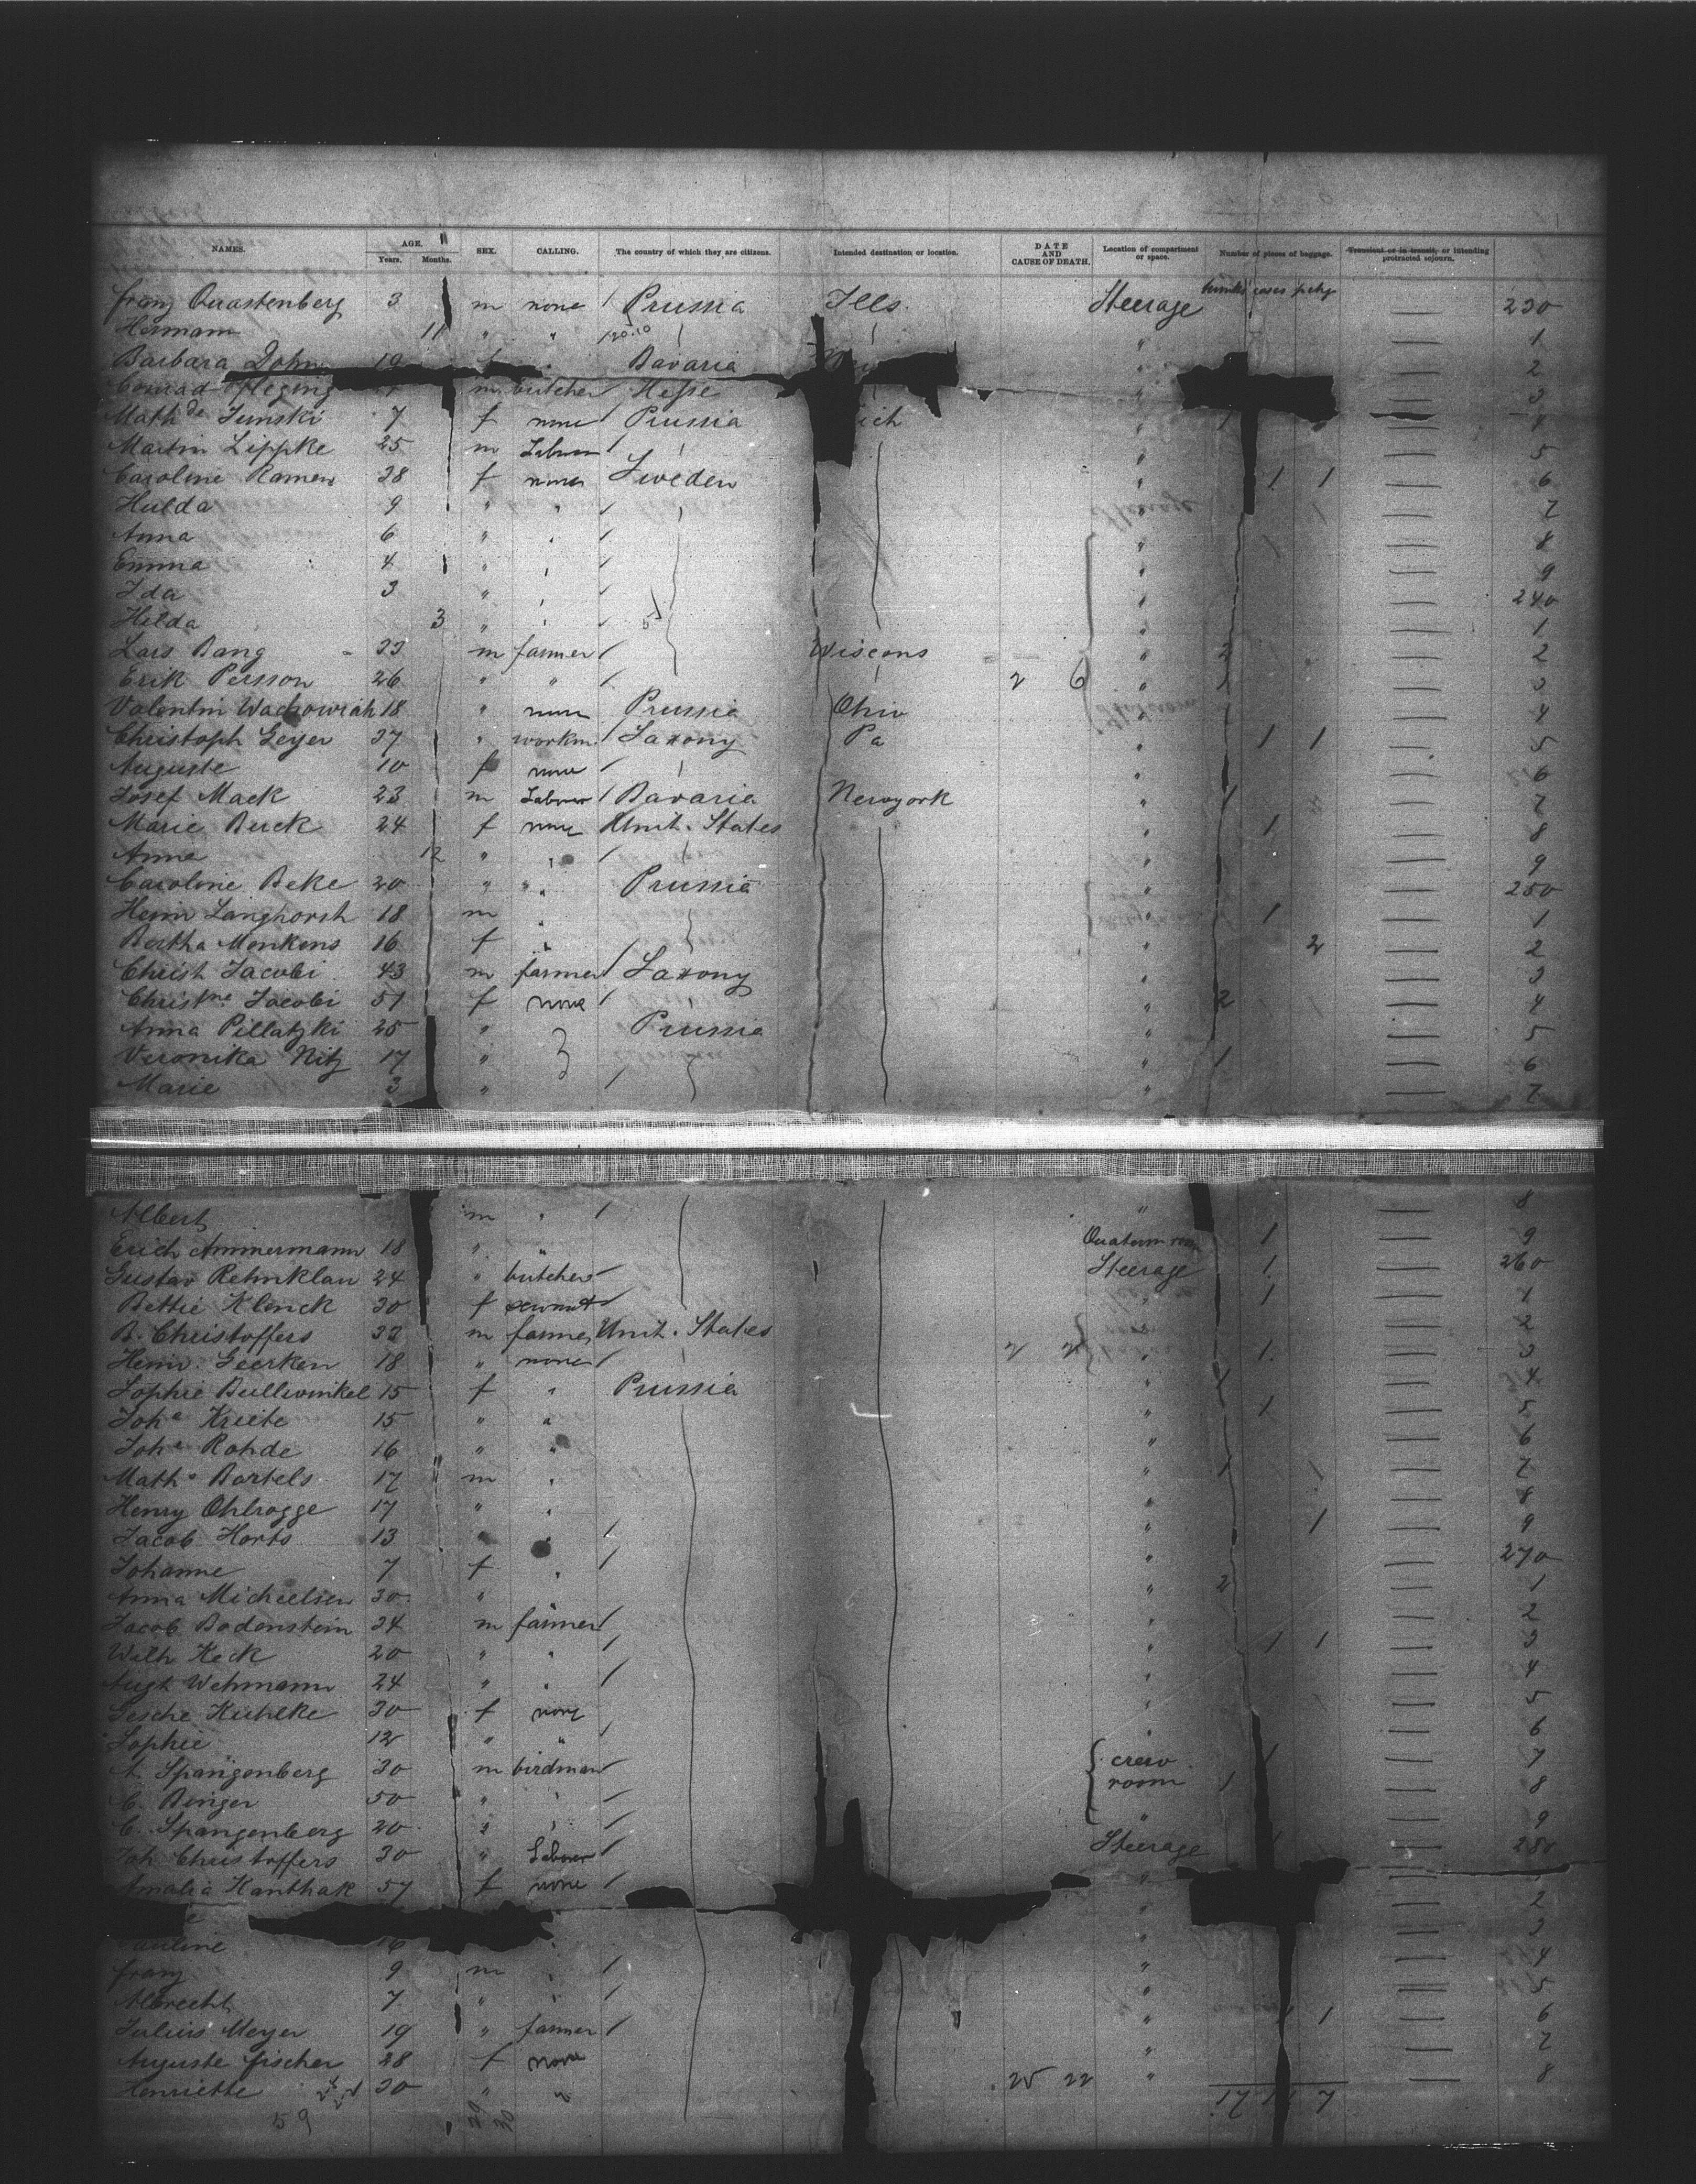 NAMES. AGE. Years. Months. SEX. CALLING. The country of which they are citizens. Intended destination or location. DATE AND CAUSE OF DEATH. Location of compartment or space. Number of pieces of baggage. Transient or in transit, or intending protracted sojourn.
cases
Franz Quastenberg 3 m none / Prussia Ills. Steerage — 230
Hermann 11 " " / " — 1
Barbara Dohn 19 f Bavaria " — 2
Conrad m butcher Hesse " — 3
Math de Junski 7 f none Prussia ich " 1 — 4
Martin Lippke 25 m Labour / " — 5
Caroline Ramen 38 f none Sweden " 1 1 — 6
Hulda 9 " " / " — 7
Anna 6 " " / " — 8
Emma 4 " " / " — 9
Ida 3 " " / " — 240
Hilda 3 " " / " — 1
Lars Bang 33 m farmer / Wiscons " 2 — 2
Erik Persson 26 " " / 2 6 " — 3
Valentin Wachowiak 18 " none Prussia Ohio " — 4
Christoph Geyer 37 " workm. / Saxony Pa " 1 1 — 5
Auguste 10 f none / " — 6
Josef Mack 23 m Labour / Bavaria Newyork " 1 — 7
Marie Berck 24 f none Unit. States " 1 — 8
Anna 12 " " / " — 9
Caroline Beke 20 " " Prussia " — 250
Heinr Langhorst 18 m " " 1 — 1
Bertha Monkens 16 f " " 2 — 2
Christ Jacobi 43 m farmer / Saxony " — 3
Christne Jacobi 51 f none / " 2 — 4
Anna Pillatzki 25 " Prussia " — 5
Veronika Nitz 17 " " 1 — 6
Marie 3 " / " — 7
Albert m " / " — 8
Erich Ammermann 18 " " 1 — 9
Gustav Rehnklau 24 " butcher / Steerage 1 — 260
Bettie Klenck 30 f servant / " 1 — 1
B. Christoffers 32 m farmer Unit. States " — 2
Heinr. Geerken 18 " none / 2 2 " 1 — 3
Sophie Bullwinkel 15 f " Prussia " 1 — 4
Joha Kriete 15 " " " 1 — 5
Joha Rohde 16 " " " — 6
Math s Bartels 17 m " " 1 — 7
Henry Ohlrogge 17 " " " — 8
Jacob Horts 13 " " / " 1 — 9
Johanne 7 f " / " — 270
Anna Micheelsen 30 " " " 2 — 1
Jacob Bodenstein 34 m farmer / " — 2
Wilh Keck 20 " " / " 1 1 — 3
Augt Wehmann 24 " " / " — 4
Gesche Kuhlke 30 f none " — 5
Sophie 12 " " / " — 6
A. Spangenberg 30 m birdman / crew 1 — 7
C. Binger 50 " " / room 1 — 8
C. Spangenberg 20 " " / " — 9
Joh Christoffers 30 " Labour / Steerage — 280
Amalia Kanthak 57 f none / " —
— 2
Pauline 16 " " — 3
Franz 9 m " / " — 4
Albrecht 7 " " / " — 5
Julius Meyer 19 " farmer / " 1 1 — 6
Auguste Fischer 28 f none " — 7
Henriette 30 " " 25 22 " — 8
59 17 7